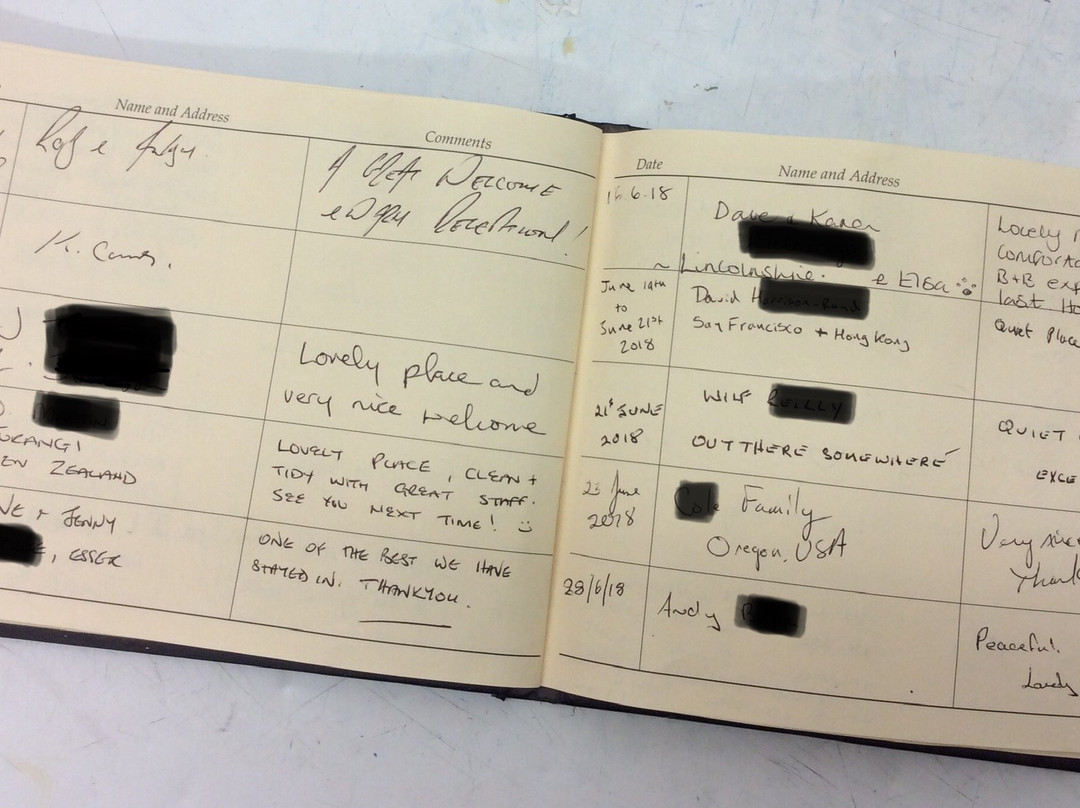 Name and Address
Comments
WELCOME
K.
Lovely place and
very nice welcome
ZEALAND
LOVELY PLACE, CLEAN +
TIDY WITH GREAT STAFF.
SEE YOU NEXT TIME!
+ JENNY
, ESSEX
ONE OF THE BEST WE HAVE
STAYED IN. THANKYOU.
Date
Name and Address
15.6.18
Dave & Karen
~ Lincolnshire. & Elsa
Lovely
B+B
last
June 19th
to
June 21st
2018
David
San Francisco + Hong Kong
Quiet Place
21st JUNE
2018
WILF
OUT THERE SOMEWHERE
QUIET
23 June
2018
Family
Oregon, USA
Very
28/6/18
Andy
Peaceful.
Lovely